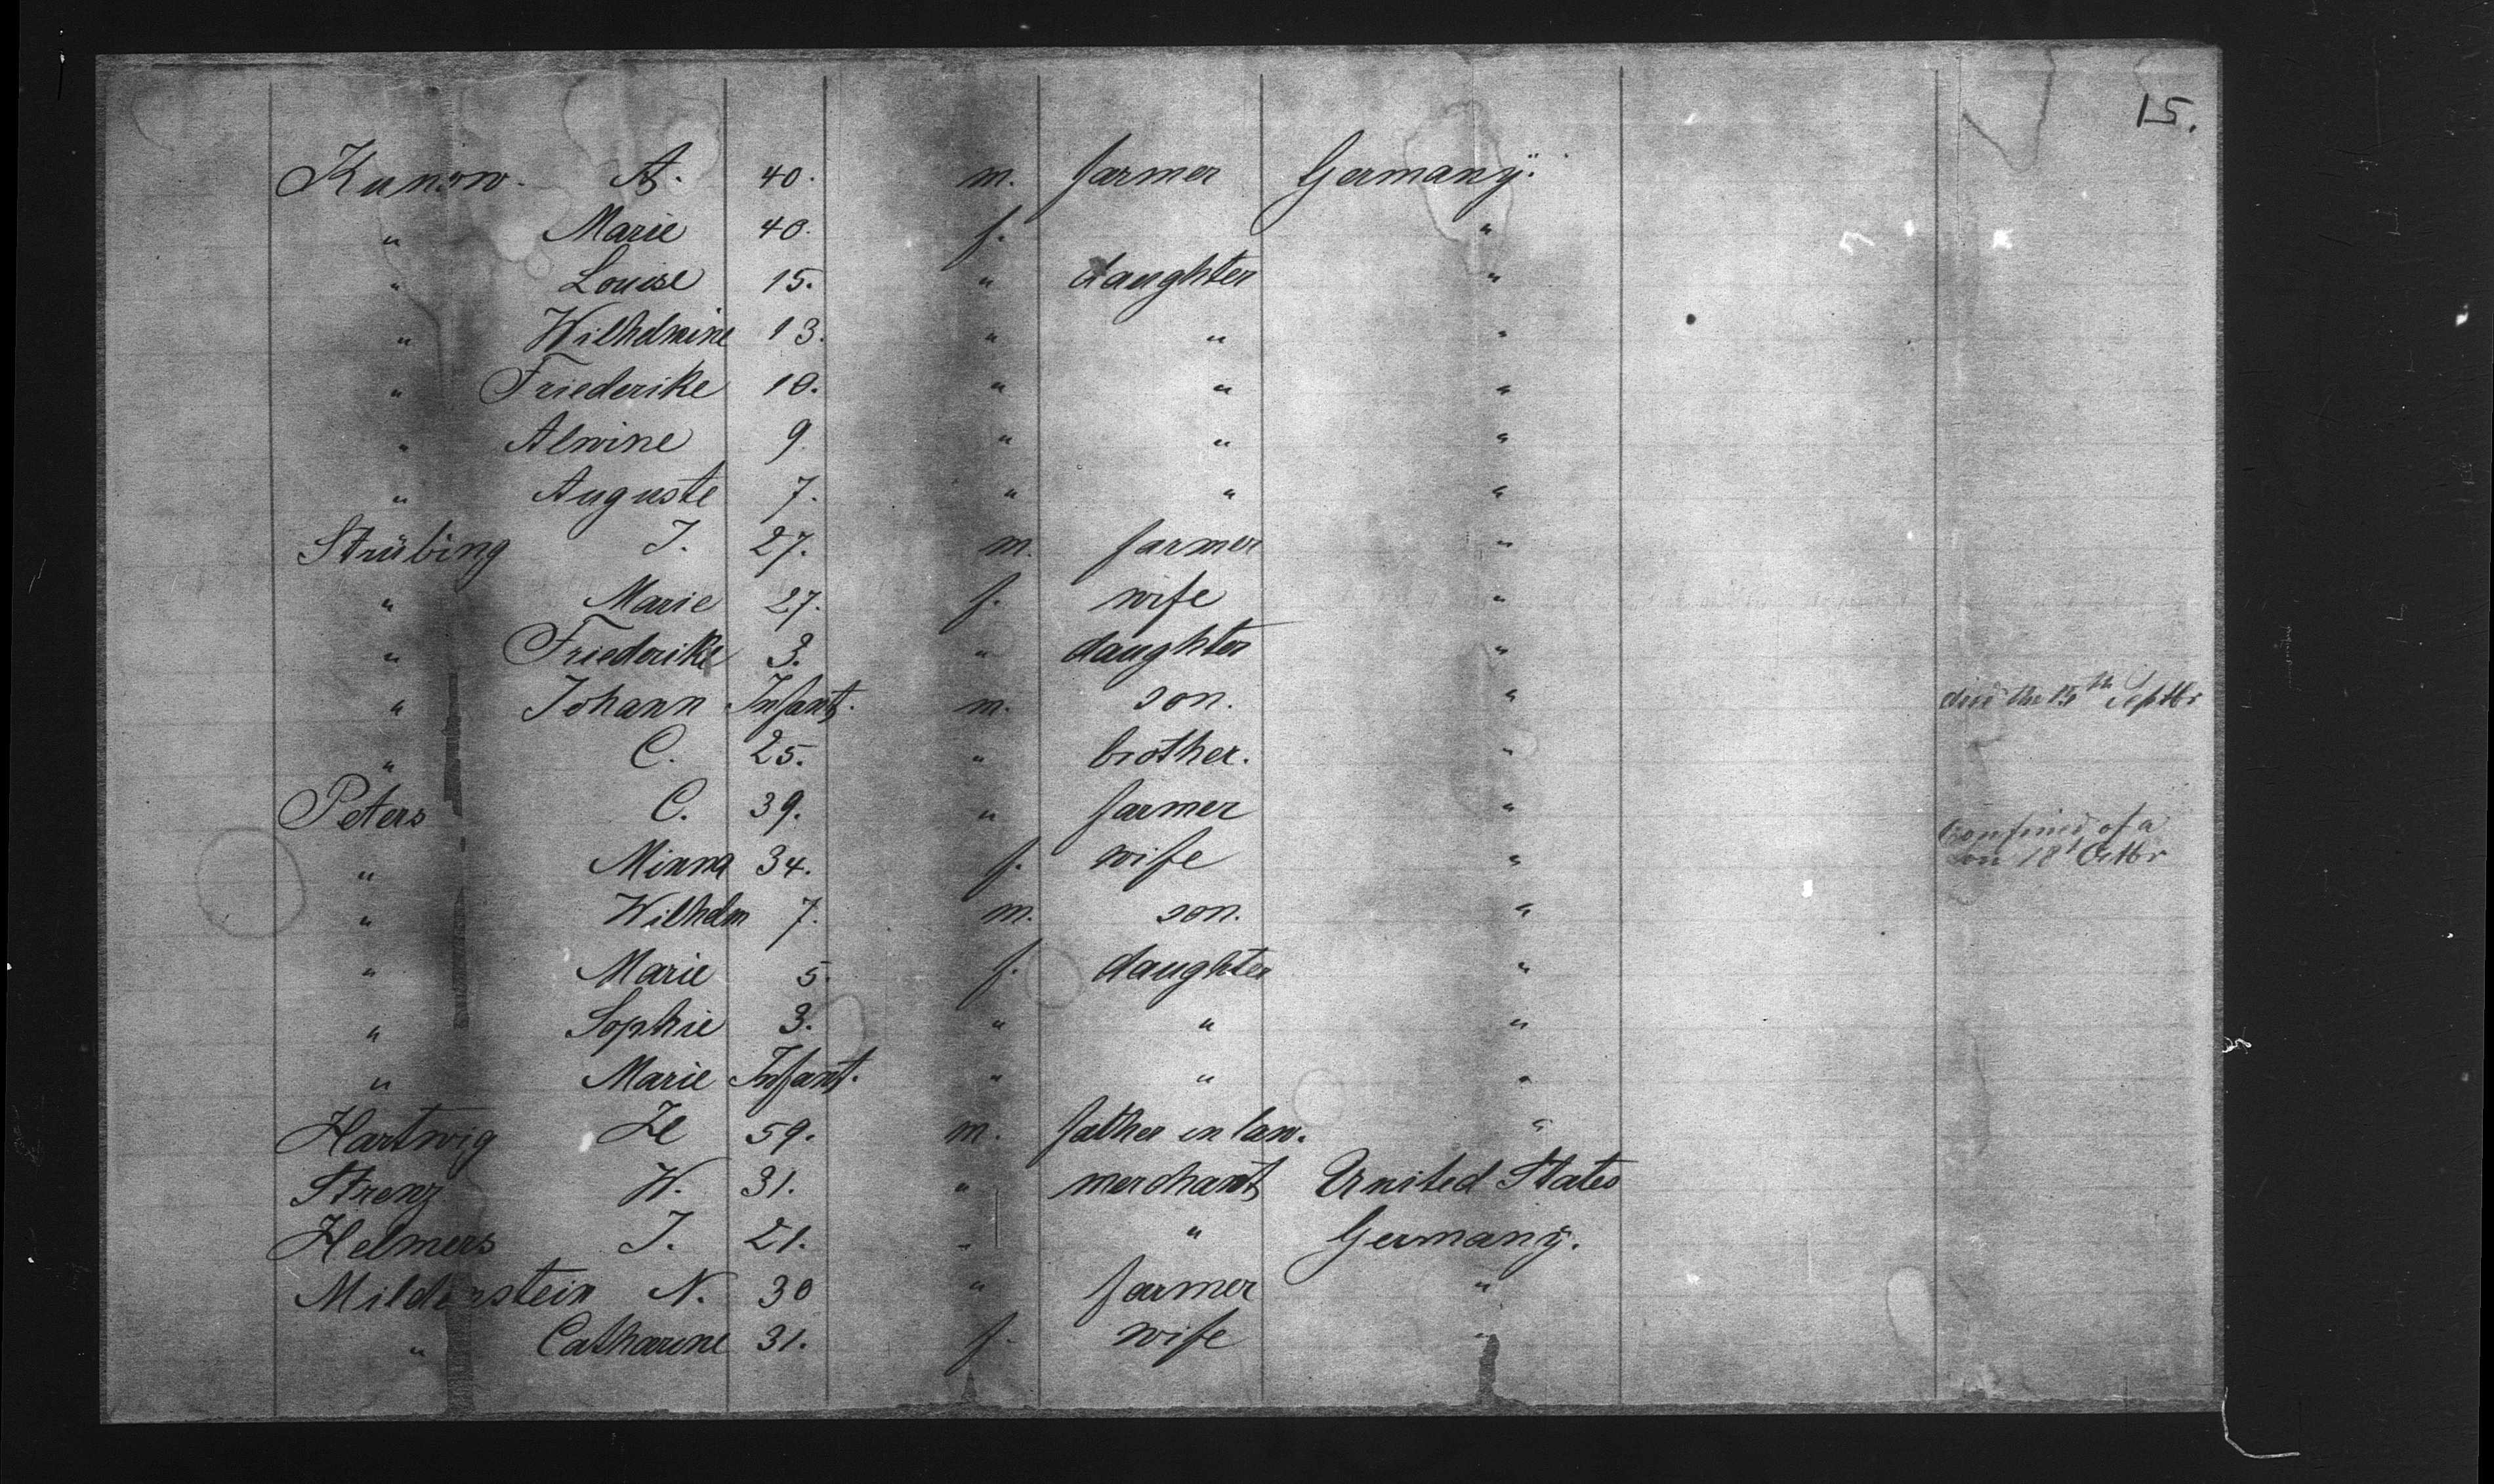 15.
Kunow. A. 40. m. farmer Germany.
" Marie 40. f. "
" Louise 15. " daughter "
" Wilhelmine 13. " " "
" Friederike 10. " " "
" Alwine 9. " " "
" Auguste 7. " " "
Strübing J. 27. m. farmer "
" Marie 27. f. wife "
" Friederike 3. " daughter "
" Johann Infant. m. son. " died the 15th Septbr
" C. 25. " brother. "
Peters C. 39. " farmer "
" Minna 34. f. wife " confined of a son 18t Octbr
" Wilhelm 7. m. son. "
" Marie 5. f. daughter "
" Sophie 3. " " "
" Marie Infant. " " "
Hartwig 59. m. father in law. "
Strenz W. 31. " merchant United States
Helmers J. 21. " " Germany.
Mildenstein N. 30 " farmer "
" Catharine 31. f. wife "